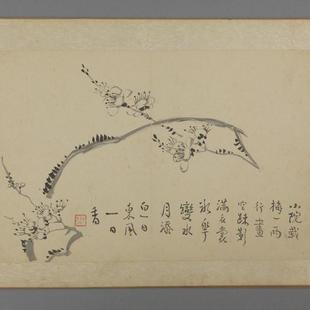 小院栽
梅一兩
行畫
空疎影
滿衣裳
冰華
變水
月添
白一日
東風
一日
香